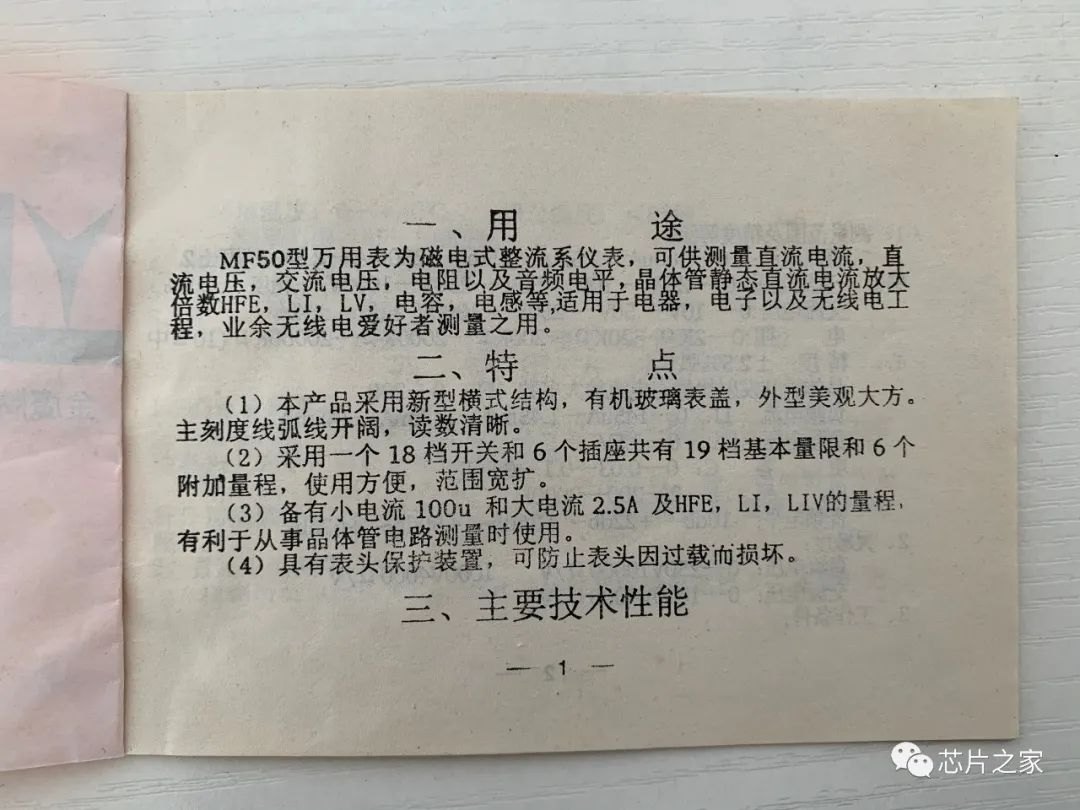 一、用 途
MF50型万用表为磁电式整流系仪表，可供测量直流电流，直
流电压，交流电压，电阻以及音频电平，晶体管静态直流电流放大
倍数HFE，LI，LV，电容，电感等，适用于电器，电子以及无线电工
程，业余无线电爱好者测量之用。
二、特 点
（1）本产品采用新型横式结构，有机玻璃表盖，外型美观大方。
主刻度线弧线开阔，读数清晰。
（2）采用一个 18 档开关和 6 个插座共有 19 档基本量限和 6 个
附加量程，使用方便，范围宽扩。
（3）备有小电流 100u 和大电流 2.5A 及HFE，LI，LIV的量程，
有利于从事晶体管电路测量时使用。
（4）具有表头保护装置，可防止表头因过载而损坏。
三、主要技术性能
— 1 —
芯片之家